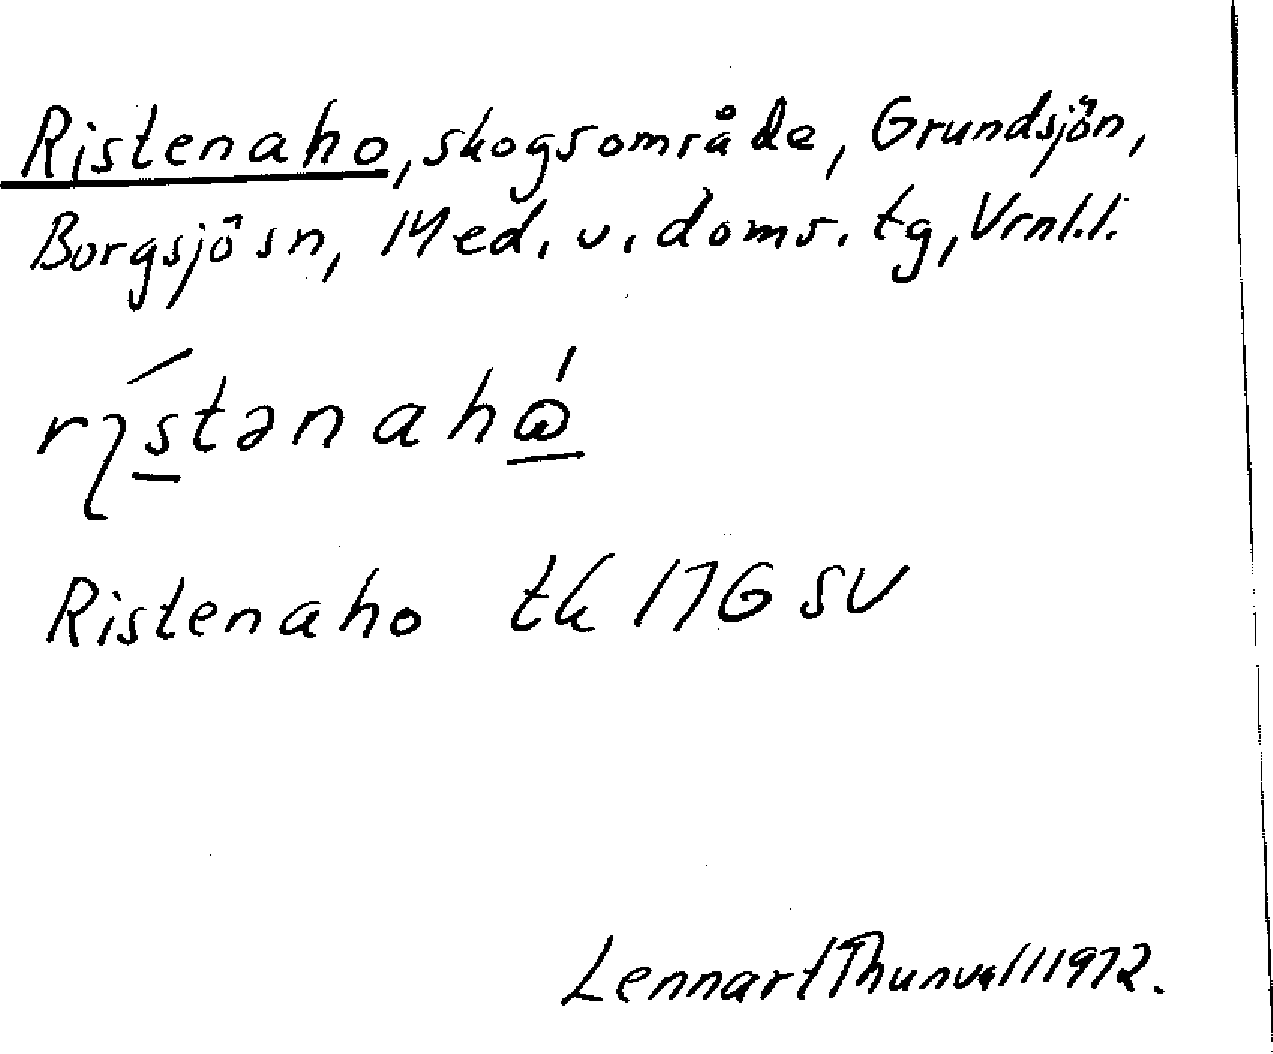 Ristenaho, skogsområde, Grundsjön,
Borgsjö sn, Med. v. doms. tg, Vrnl.l.
Ristenaho tk 17G SV
Lennart Thunvall 1972.